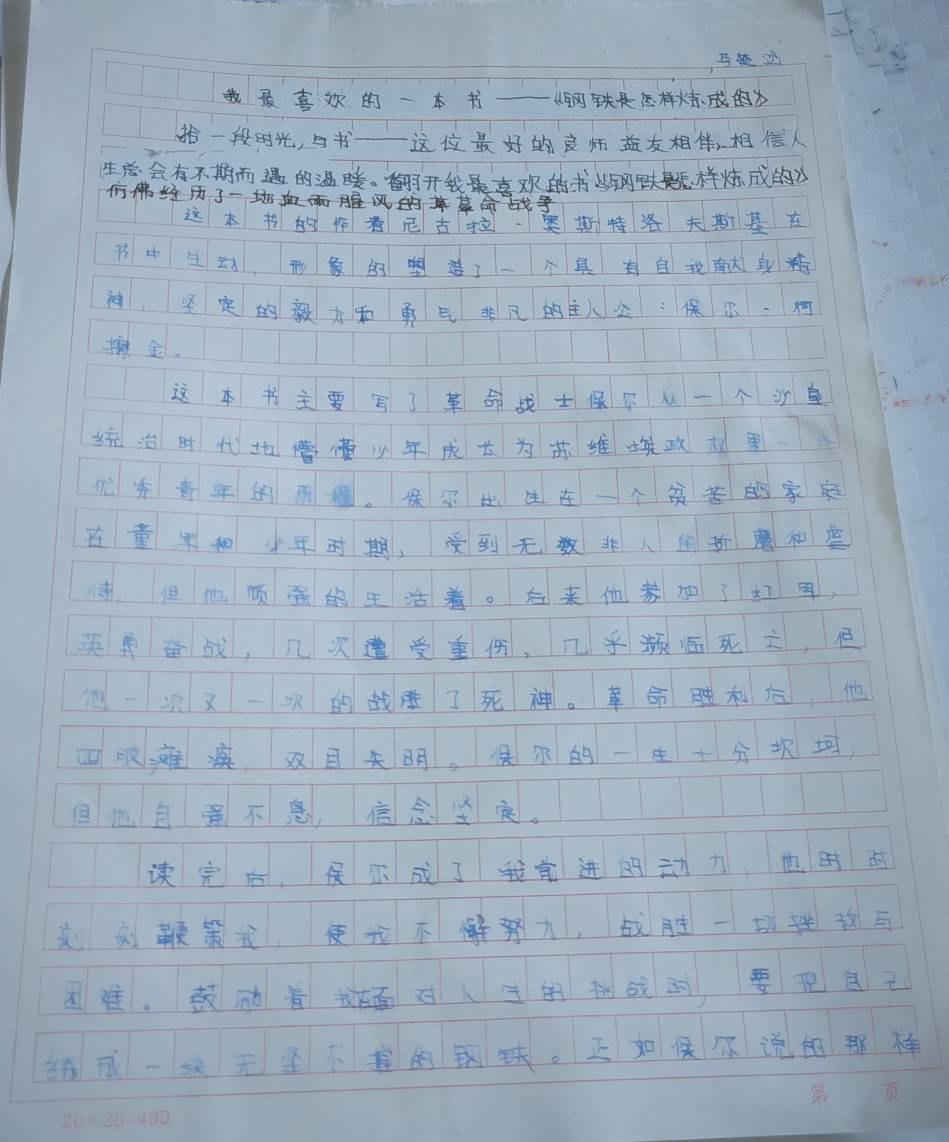 马楚
我最喜欢的一本书——《钢铁是怎样炼成的》
拾一段时光,与书——这位最好的良师益友相伴,相信人
生总会有不期而遇的温暖。翻开我最喜欢的书《钢铁是怎样炼成的》
仿佛经历了一场血雨腥风的革命战争
这本书的作者尼古拉·奥斯特洛夫斯基在
书中生动、形象的塑造了一个具有自我献身精
神、坚定的毅力和勇气非凡的主人公:保尔·柯
擦金。
这本书主要写了革命战士保尔从一个沙皇
统治时代地懵懂少年成长为苏维埃政权里一个
优秀青年的历程。保尔出生在一个贫苦的家庭
在童年和少年时期,受到无数非人的折磨和虐
待,但他顽强的生活着。后来他参加了红军,
英勇奋战,几次遭受重伤,几乎濒临死亡,但
他一次又一次的战胜了死神。革命胜利后,他
四肢瘫痪,双目失明。保尔的一生十分坎坷,
但他自强不息,信念坚定。
读完后,保尔成了我前进的动力,他时时
刻刻鞭策我,使我不懈努力,战胜一切挫折与
困难。鼓励着我面对人生的挑战时,要把自己
练成一块无坚不摧的钢铁。正如保尔说的那样
第 页
20×20=400